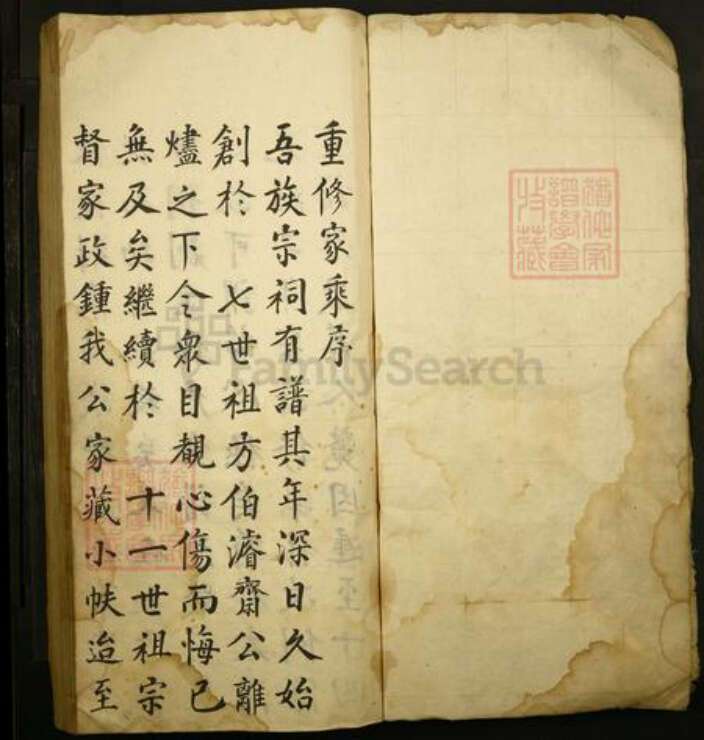 重修家乘序
吾族宗祠有譜其年深日久始
創於 七世祖方伯濬齋公離
燼之下令衆目覩心傷而悔已
無及矣繼續於 十一世祖宗
督家政鍾我公家藏小帙迨至
譜學會
收藏
FamilySearch